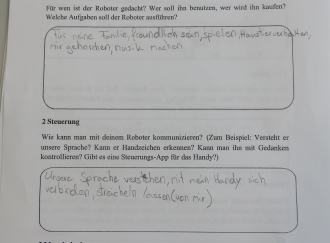 Für wen ist der Roboter gedacht? Wer soll ihn benutzen, wer wird ihn kaufen?
Welche Aufgaben soll der Roboter ausführen?
Für meine Familie, freundlich sein, spielen, Haustier verhalten,
mir gehorchen, musik machen
2 Steuerung
Wie kann man mit deinem Roboter kommunizieren? (Zum Beispiel: Versteht er
unsere Sprache? Kann er Handzeichen erkennen? Kann man ihn mit Gedanken
kontrollieren? Gibt es eine Steuerungs-App für das Handy?)
Unsere Sprache verstehen, mit mein Handy sich
verbinden, streicheln lassen (von mir)